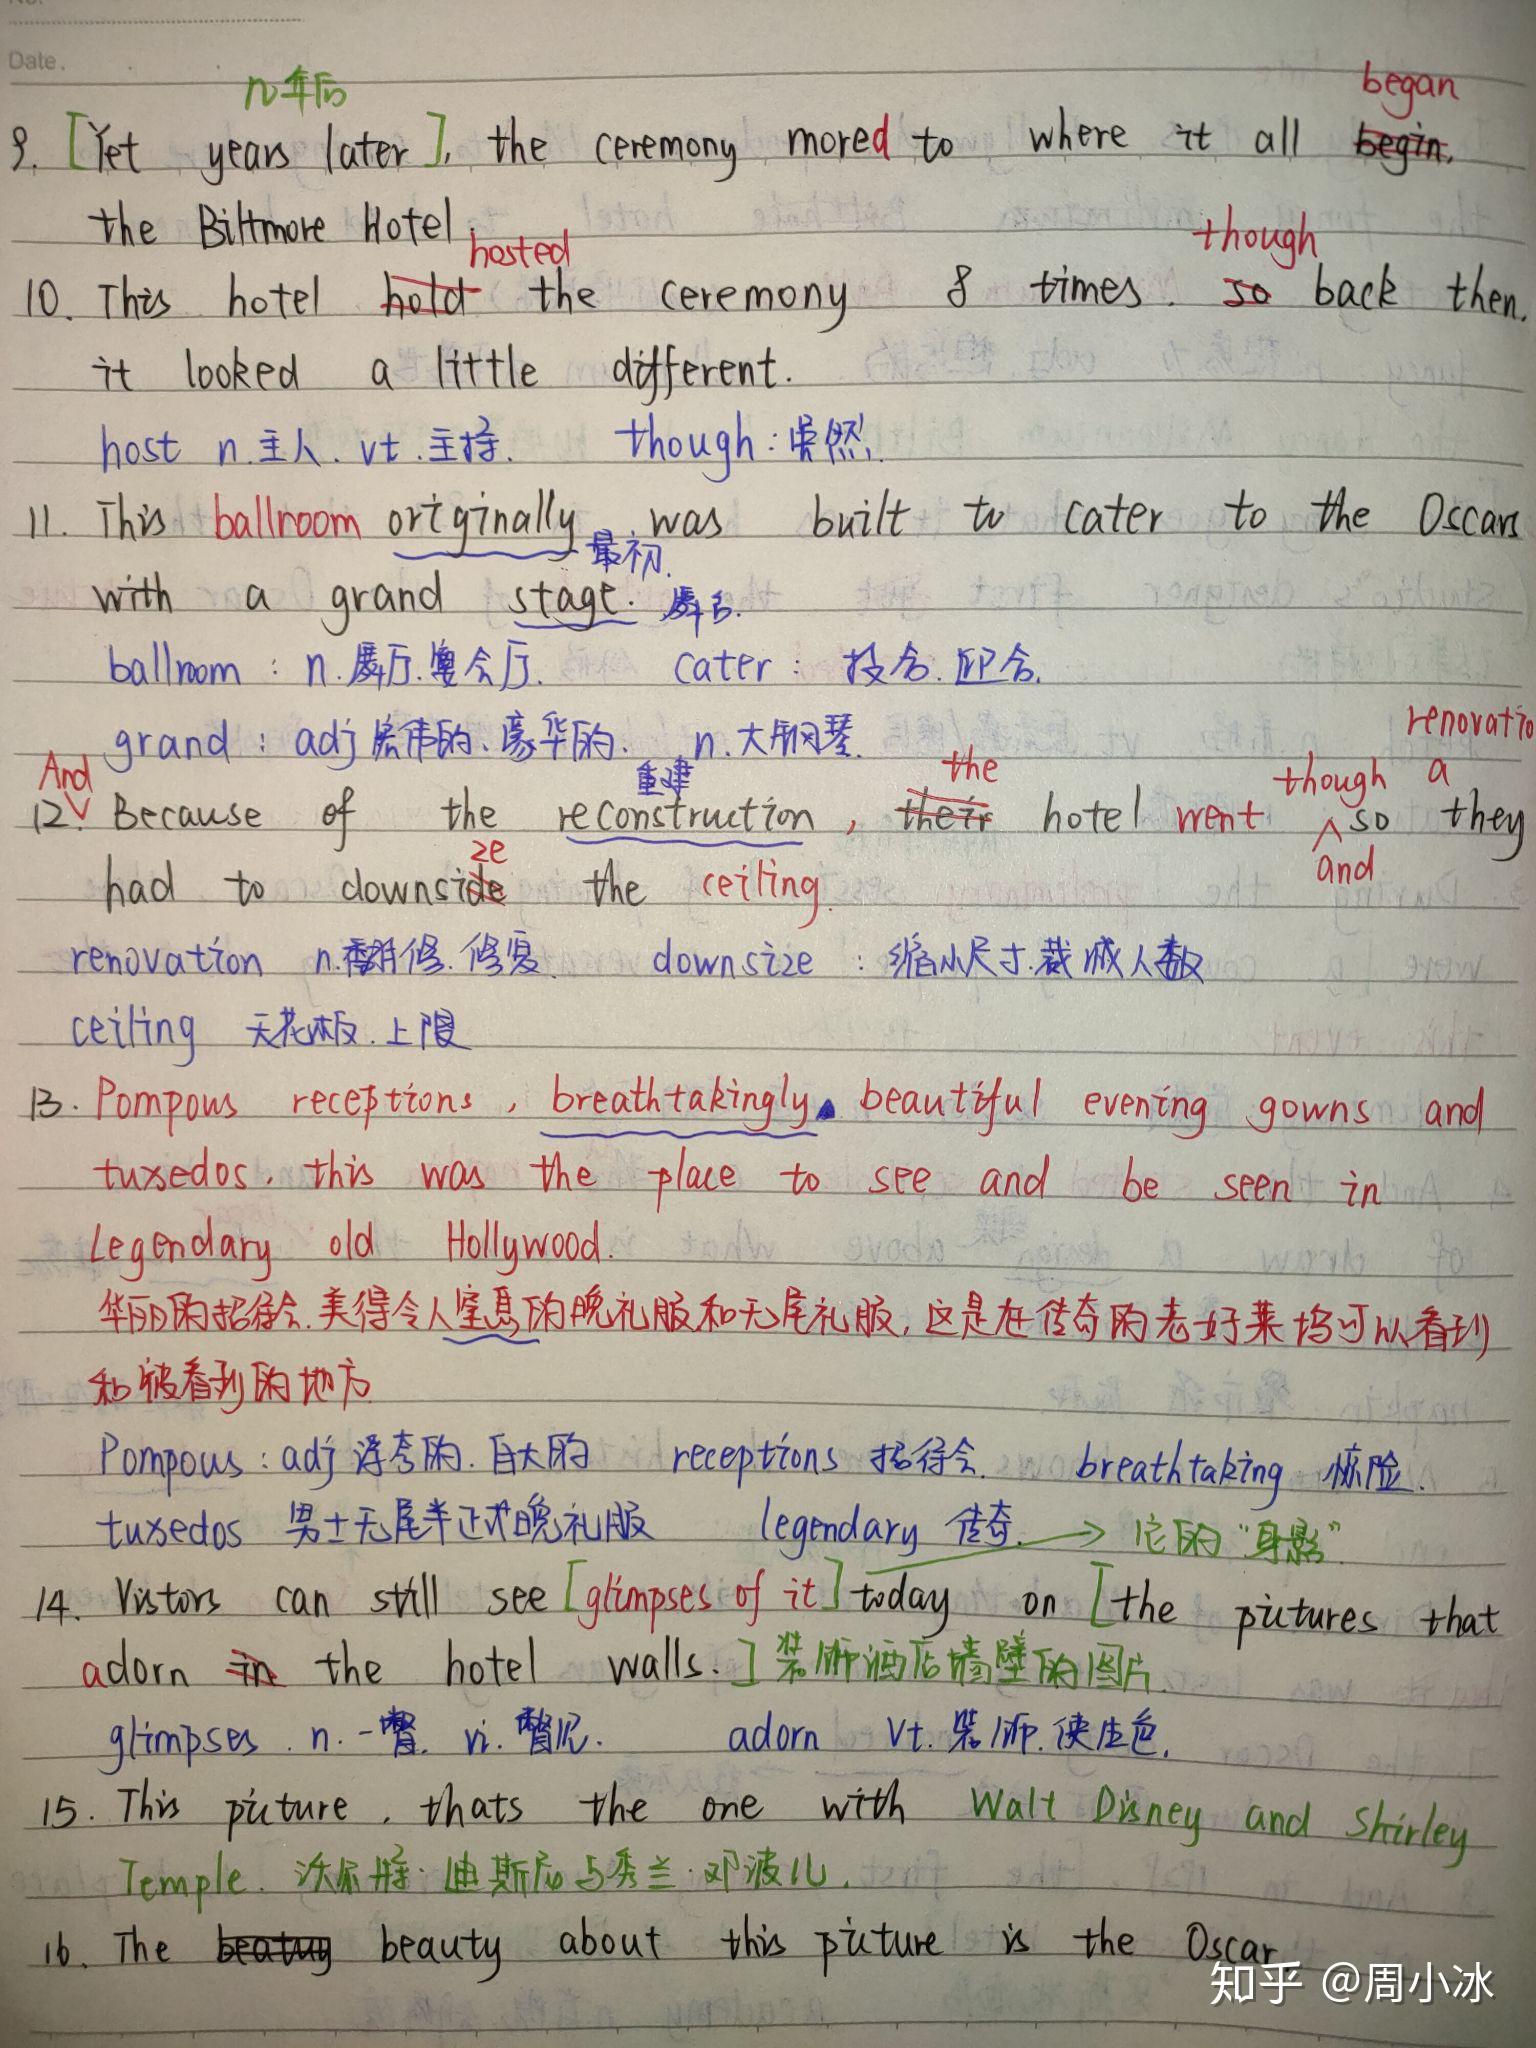 No.
Date.
n年后
began
9. [Yet years later], the ceremony mored to where it all begin,
the Biltmore Hotel.
hosted
though
10. This hotel hold the ceremony 8 times. so back then,
it looked a little different.
host n.主人. vt.主持. though:虽然.
11. This ballroom originally was built to cater to the Oscars
最初.
with a grand stage. 舞台.
ballroom : n.舞厅.宴会厅. cater : 投合.迎合.
grand : adj 宏伟的、豪华的. n.大钢琴.
renovatio
And 重建 the though a
12. Because of the reconstruction, their hotel went so they
ze and
had to downside the ceiling.
renovation n.翻修.修复 downsize : 缩小尺寸.裁减人数
ceiling 天花板.上限
13. Pompous receptions, breathtakingly beautiful evening gowns and
tuxedos, this was the place to see and be seen in
Legendary old Hollywood.
华丽的招待会.美得令人窒息的晚礼服和无尾礼服,这是在传奇的老好莱坞可以看到
和被看到的地方
Pompous : adj 浮夸的.自大的 receptions 招待会. breathtaking 惊险.
tuxedos 男士无尾半正式晚礼服 legendary 传奇. → 它的“身影”
14. Vistors can still see [glimpses of it] today on [the pictures that
adorn in the hotel walls.] 装饰酒店墙壁的图片.
glimpses . n.一瞥. vi.瞥见. adorn vt.装饰.使生色.
15. This picture, thats the one with Walt Disney and Shirley
Temple. 沃尔特·迪斯尼与秀兰·邓波儿.
16. The beauty about this picture is the Oscar.
知乎 @周小冰